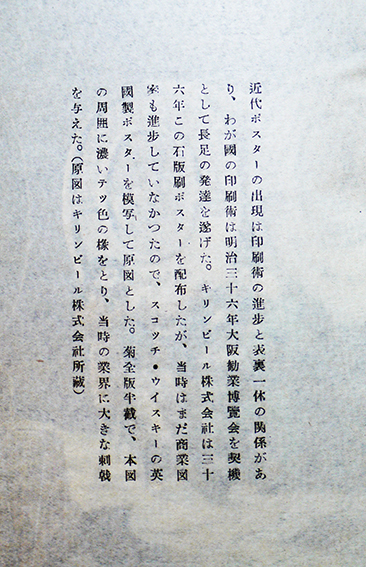 近代ポスターの出現は印刷術の進歩と表裏一体の関係があ
り、わが國の印刷術は明治三十六年大阪勧業博覽会を契機
として長足の発達を遂げた。キリンビール株式会社は三十
六年この石版刷ポスターを配布したが、当時はまだ商業図
案も進歩していなかつたので、スコッチ・ウイスキーの英
國製ポスターを模写して原図とした。菊全版半截で、本図
の周囲に濃いテツ色の様をとり、当時の業界に大きな刺戟
を与えた。（原図はキリンビール株式会社所蔵）